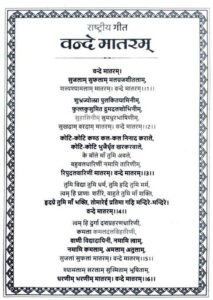 राष्ट्रीय गीत
वन्दे मातरम्
वन्दे मातरम्।
सुजलाम् सुफलाम् मलयजशीतलाम्,
शस्यश्यामलाम् मातरम्। वन्दे मातरम्।।1।।
शुभ्रज्योत्स्ना पुलकितयामिनीम्,
फुल्लकुसुमित द्रुमदलशोभिनीम्,
सुहासिनीम् सुमधुरभाषिणीम्,
सुखदाम् वरदाम् मातरम्। वन्दे मातरम्।।2।।
कोटि-कोटि कण्ठ कल-कल निनाद कराले,
कोटि-कोटि भुजैर्धृत खरकरवाले,
के बॉले माँ तुमि अबले,
बहुबलधारिणीं नमामि तारिणीम्,
रिपुदलवारिणीं मातरम्। वन्दे मातरम्।।3।।
तुमि विद्या तुमि धर्म, तुमि हृदि तुमि मर्म,
त्वम् हि प्राणाः शरीरे, बाहुते तुमि माँ शक्ति,
हृदये तुमि माँ भक्ति, तोमारेई प्रतिमा गड़ि मन्दिरे-मन्दिरे।
वन्दे मातरम्।।4।।
त्वम् हि दुर्गा दशप्रहरणधारिणीं,
कमला कमलदलविहारिणीं,
वाणी विद्यादायिनीं, नमामि त्वाम्,
नमामि कमलाम्, अमलाम्, अतुलाम्,
सुजलां सुफलां मातरम्। वन्दे मातरम्।।5।।
श्यामलाम् सरलाम् सुस्मिताम् भूषिताम्,
धरणीम् भरणीम् मातरम्। वन्दे मातरम्।।6।।